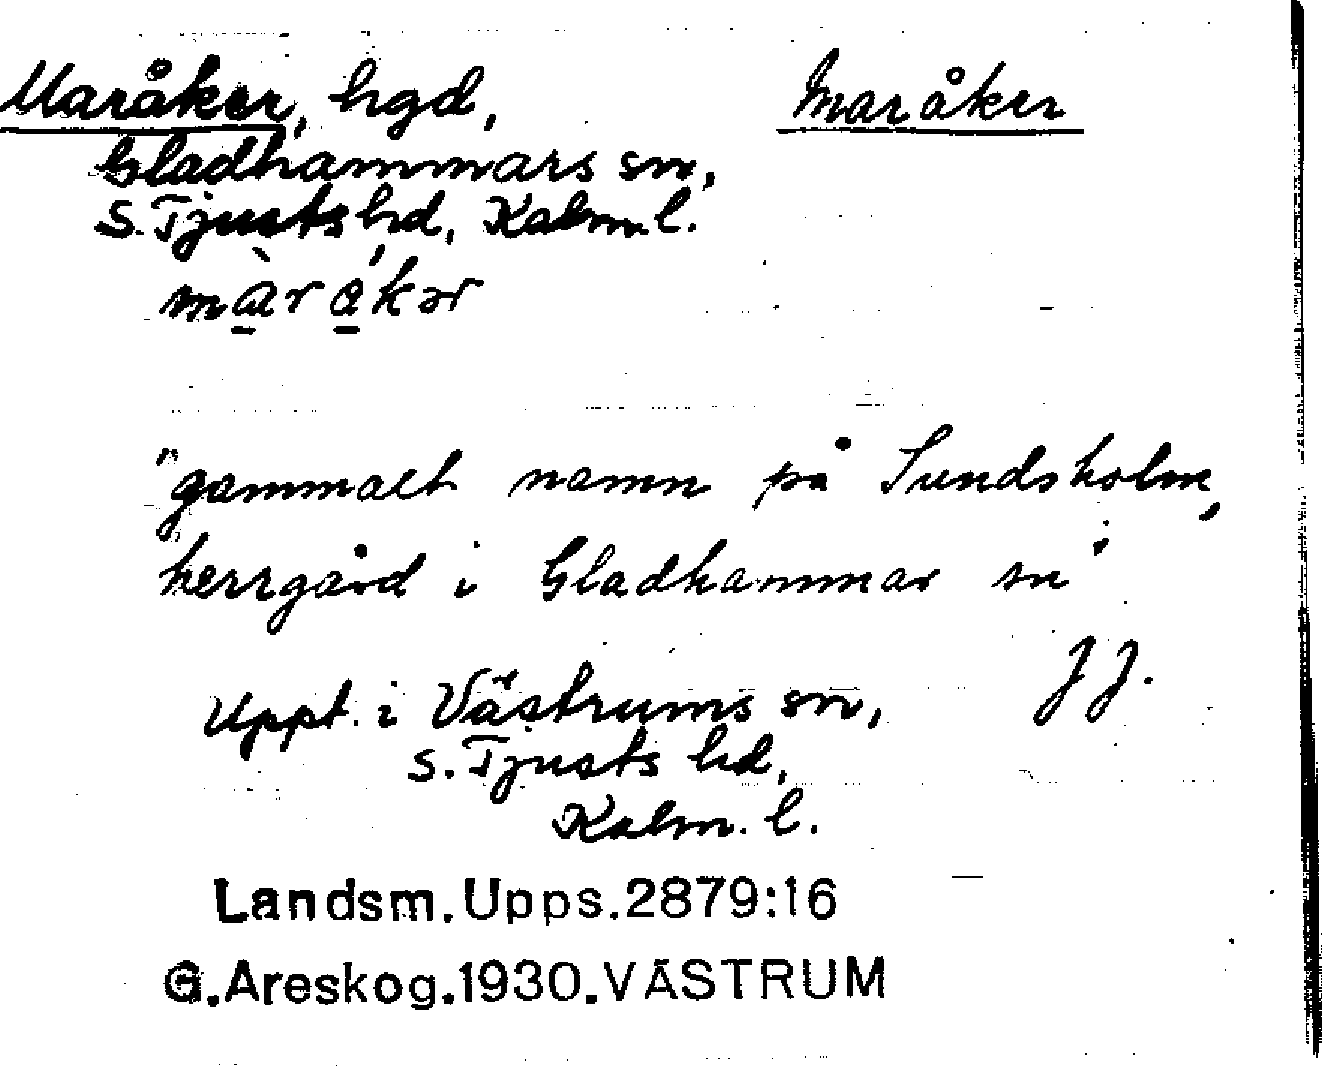 Maråker, hgd,
Maråker
Gladhammars sn,
S. Tjusts hd, Kalm. l.
"gammalt namn på Sundsholm,
herrgård i Gladhammar sn"
J J.
Uppt. i Västrums sn,
S. Tjusts hd,
Kalm. l.
Landsm.Upps.2879:16
G.Areskog.1930.VÄSTRUM